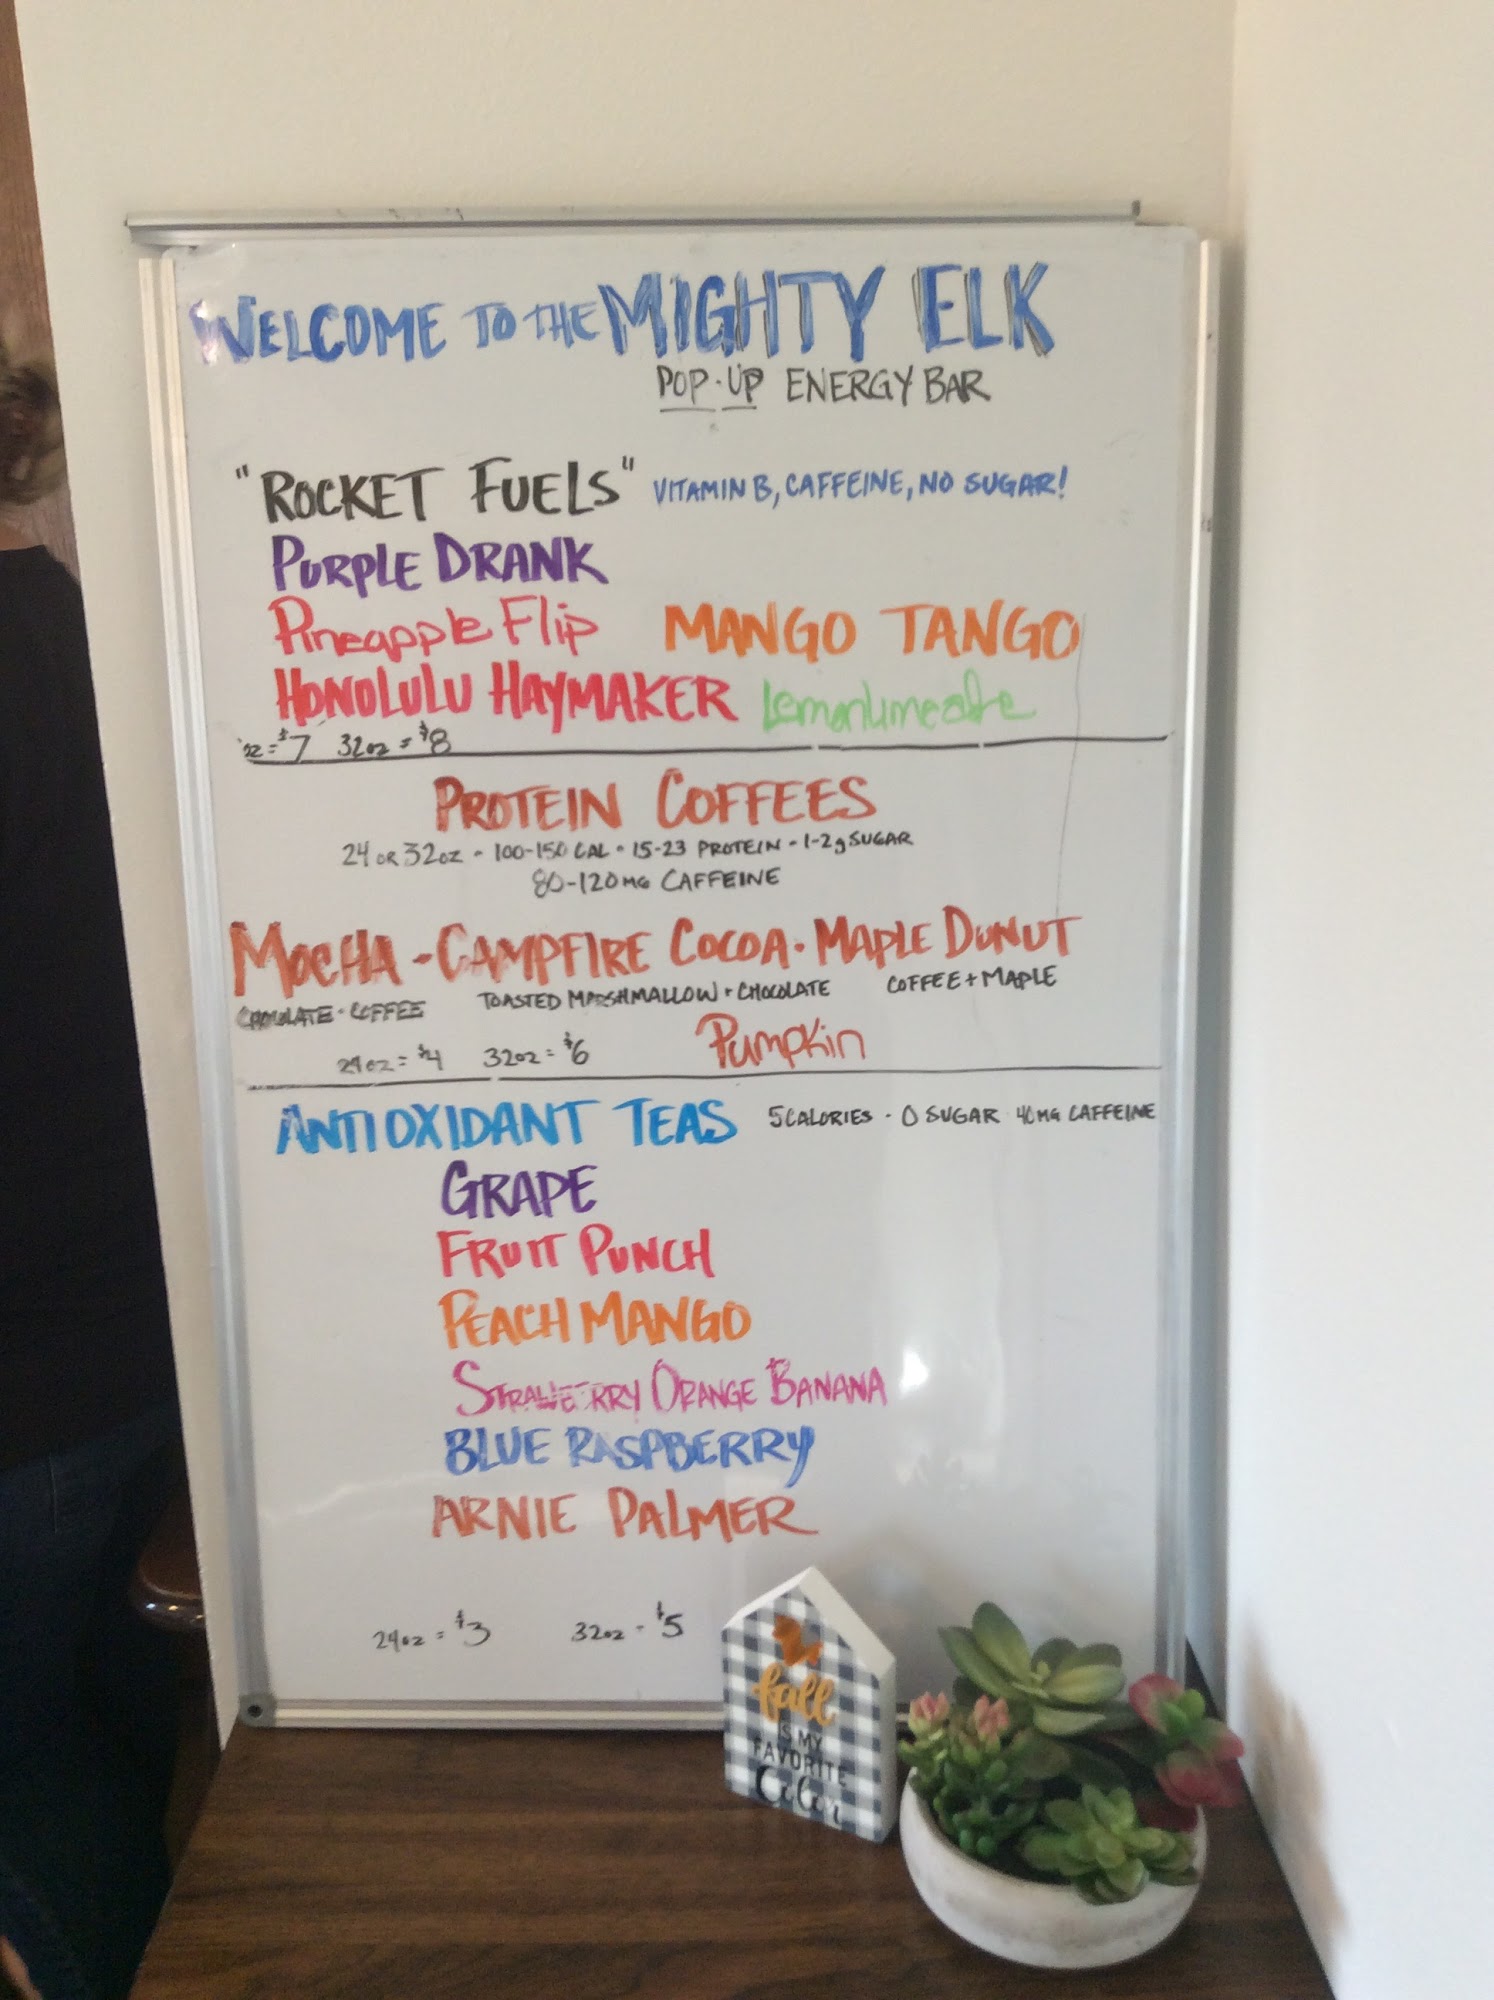 WELCOME TO THE MIGHTY ELK
POP-UP ENERGY BAR
"ROCKET FUELS" VITAMIN B, CAFFEINE, NO SUGAR!
PURPLE DRANK
Pineapple Flip MANGO TANGO
HONOLULU HAYMAKER Lemonlimeade
oz = $7 32oz = $8
PROTEIN COFFEES
24 OR 32OZ - 100-150 CAL - 15-23 PROTEIN - 1-2g SUGAR
80-120MG CAFFEINE
MOCHA - CAMPFIRE COCOA - MAPLE DONUT
CHOCOLATE - COFFEE TOASTED MARSHMALLOW + CHOCOLATE COFFEE + MAPLE
24oz = $4 32oz = $6 Pumpkin
ANTIOXIDANT TEAS 5 CALORIES - 0 SUGAR 40MG CAFFEINE
GRAPE
FRUIT PUNCH
PEACH MANGO
STRAWBERRY ORANGE BANANA
BLUE RASPBERRY
ARNIE PALMER
24oz = $3 32oz - $5
fall
IS MY
FAVORITE
Color